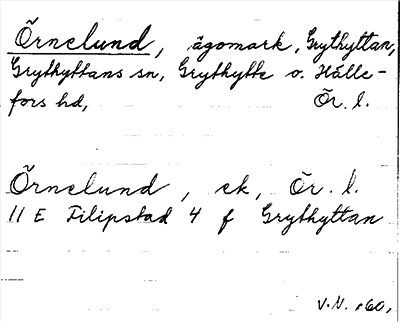 Örnelund, ägomark, Grythyttan,
Grythyttans sn, Grythytte o. Hälle-
fors hd, Ör. l.
Örnelund, ek, Ör. l.
11 E Filipstad 4 f Grythyttan
V.N. 60.